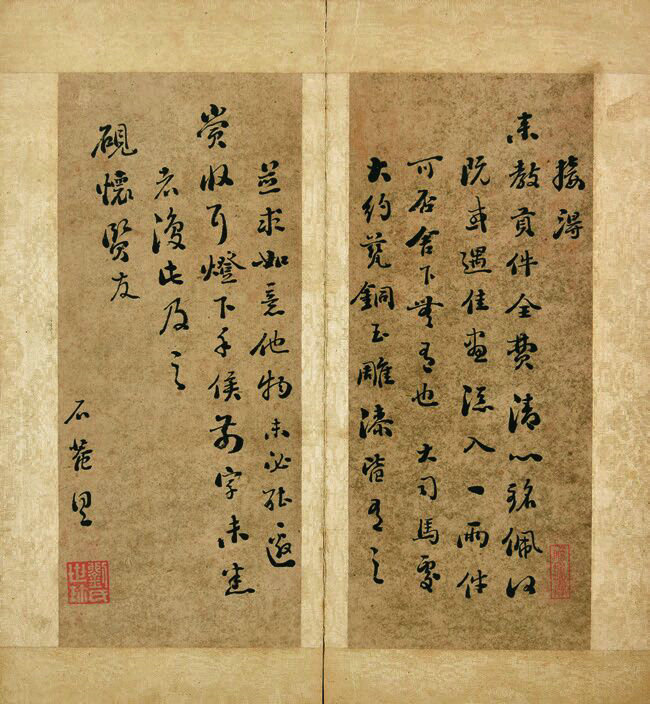 接得
来教貢件全費清心銘佩何
既或遇佳畫添入一兩件
可否舍下無有也 大司馬處
大約瓷銅玉雕漆皆有之
並求如意他物未必能邀
賞收耳燈下手前字未悉
者復此及之
硯懷賢友
石菴
劉氏世珍